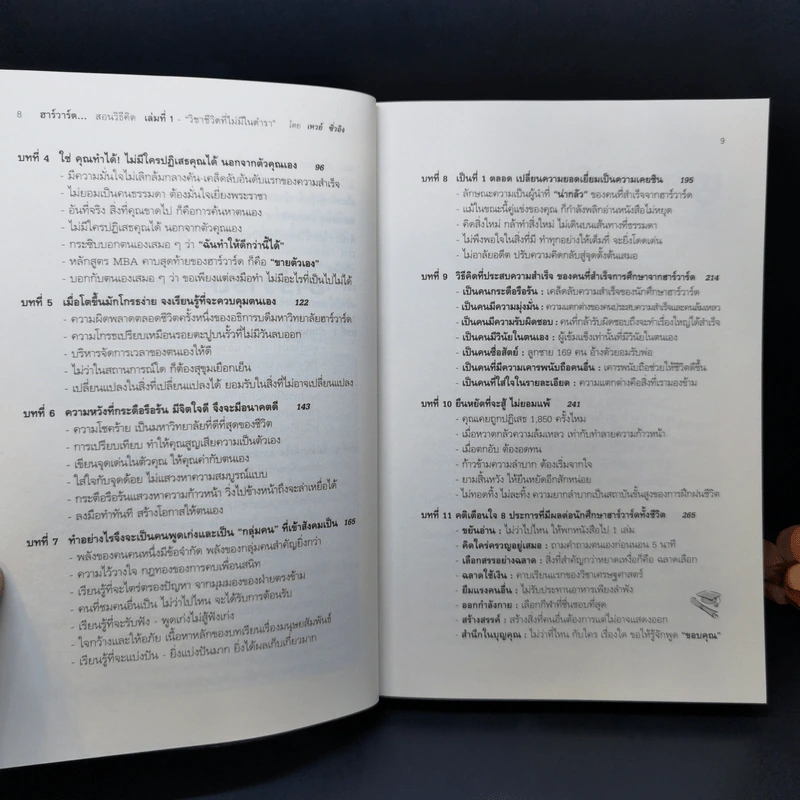 8 ฮาร์วาร์ด... สอนวิธีคิด เล่มที่ 1 - "วิชาชีวิตที่ไม่มีในตำรา" โดย เหวย์ ซิ่วอิง
บทที่ 4 ใช่ คุณทำได้! ไม่มีใครปฏิเสธคุณได้ นอกจากตัวคุณเอง 96
- มีความมั่นใจไม่เลิกล้มกลางคัน-เคล็ดลับอันดับแรกของความสำเร็จ
- ไม่ยอมเป็นคนธรรมดา ต้องมั่นใจเยี่ยงพระราชา
- อันที่จริง สิ่งที่คุณขาดไป ก็คือการค้นหาตนเอง
- ไม่มีใครปฏิเสธคุณได้ นอกจากตัวคุณเอง
- กระซิบบอกตนเองเสมอ ๆ ว่า "ฉันทำให้ดีกว่านี้ได้"
- หลักสูตร MBA คาบสุดท้ายของฮาร์วาร์ด ก็คือ "ขายตัวเอง"
- บอกกับตนเองเสมอ ๆ ว่า ขอเพียงแต่ลงมือทำ ไม่มีอะไรที่เป็นไปไม่ได้
บทที่ 5 เมื่อโตขึ้นมักโกรธง่าย จงเรียนรู้ที่จะควบคุมตนเอง 122
- ความผิดพลาดตลอดชีวิตครั้งหนึ่งของอธิการบดีมหาวิทยาลัยฮาร์วาร์ด
- ความโกรธเปรียบเหมือนรอยตะปูบนรั้วที่ไม่มีวันลบออก
- บริหารจัดการเวลาของตนเองให้ดี
- ไม่ว่าในสถานการณ์ใด ก็ต้องสุขุมเยือกเย็น
- เปลี่ยนแปลงในสิ่งที่เปลี่ยนแปลงได้ ยอมรับในสิ่งที่ไม่อาจเปลี่ยนแปลง
บทที่ 6 ความหวังที่กระตือรือร้น มีจิตใจดี จึงจะมีอนาคตดี 143
- ความโชคร้าย เป็นมหาวิทยาลัยที่ดีที่สุดของชีวิต
- การเปรียบเทียบ ทำให้คุณสูญเสียความเป็นตัวเอง
- เขียนจุดเด่นในตัวคุณ ให้คุณค่ากับตนเอง
- ใส่ใจกับจุดด้อย ไม่แสวงหาความสมบูรณ์แบบ
- กระตือรือร้นแสวงหาความก้าวหน้า วิ่งไปข้างหน้าถึงจะล่าเหยื่อได้
- ลงมือทำทันที สร้างโอกาสให้ตนเอง
บทที่ 7 ทำอย่างไรจึงจะเป็นคนพูดเก่งและเป็น "กลุ่มคน" ที่เข้าสังคมเป็น 165
- พลังของคนคนหนึ่งมีข้อจำกัด พลังของกลุ่มคนสำคัญยิ่งกว่า
- ความไว้วางใจ กฎทองของการคบเพื่อนสนิท
- เรียนรู้ที่จะไตร่ตรองปัญหา จากมุมมองของฝ่ายตรงข้าม
- คนที่ชมคนอื่นเป็น ไม่ว่าไปไหน จะได้รับการต้อนรับ
- เรียนรู้ที่จะรับฟัง - พูดเก่งไม่สู้ฟังเก่ง
- ใจกว้างและให้อภัย เนื้อหาหลักของบทเรียนเรื่องมนุษยสัมพันธ์
- เรียนรู้ที่จะแบ่งปัน - ยิ่งแบ่งปันมาก ยิ่งได้ผลเก็บเกี่ยวมาก
9
บทที่ 8 เป็นที่ 1 ตลอด เปลี่ยนความยอดเยี่ยมเป็นความเคยชิน 195
- ลักษณะความเป็นผู้นำที่ "น่ากลัว" ของคนที่สำเร็จจากฮาร์วาร์ด
- แม้ในขณะนี้คู่แข่งของคุณ ก็กำลังพลิกอ่านหนังสือไม่หยุด
- คิดสิ่งใหม่ กล้าทำสิ่งใหม่ ไม่เดินบนเส้นทางที่ธรรมดา
- ไม่พึงพอใจในสิ่งที่มี ทำทุกอย่างให้เต็มที่ จะยิ่งโดดเด่น
- ไม่อาลัยอดีต ปรับความคิดกลับสู่จุดตั้งต้นเสมอ
บทที่ 9 วิธีคิดที่ประสบความสำเร็จ ของคนที่สำเร็จการศึกษาจากฮาร์วาร์ด 214
- เป็นคนกระตือรือร้น : เคล็ดลับความสำเร็จของนักศึกษาฮาร์วาร์ด
- เป็นคนมีความมุ่งมั่น : ความแตกต่างของคนประสบความสำเร็จและคนล้มเหลว
- เป็นคนมีความรับผิดชอบ : คนที่กล้ารับผิดชอบถึงจะทำเรื่องใหญ่ได้สำเร็จ
- เป็นคนมีวินัยในตนเอง : ผู้เข้มแข็งเท่านั้นที่มีวินัยในตนเอง
- เป็นคนซื่อสัตย์ : ลูกชาย 169 คน อ้างตัวยอมรับพ่อ
- เป็นคนที่มีความเคารพนับถือคนอื่น : เคารพนับถือช่วยให้ชีวิตดีขึ้น
- เป็นคนที่ใส่ใจในรายละเอียด : ความแตกต่างคือสิ่งที่เรามองข้าม
บทที่ 10 ยืนหยัดที่จะสู้ ไม่ยอมแพ้ 241
- คุณเคยถูกปฏิเสธ 1,850 ครั้งไหม
- เมื่อหวาดกลัวความล้มเหลว เท่ากับทำลายความก้าวหน้า
- เมื่อตกอับ ต้องอดทน
- ก้าวข้ามความลำบาก ต้องเริ่มจากใจ
- ยามสิ้นหวัง ให้ยืนหยัดอีกสักหน่อย
- ไม่ทอดทิ้ง ไม่ละทิ้ง ความยากลำบากเป็นสถาบันชั้นสูงของการฝึกฝนชีวิต
บทที่ 11 คติเตือนใจ 8 ประการที่มีผลต่อนักศึกษาฮาร์วาร์ดทั้งชีวิต 265
- ขยันอ่าน : ไม่ว่าไปไหน ให้พกหนังสือไป 1 เล่ม
- คิดใคร่ครวญอยู่เสมอ : ถามคำถามตนเองก่อนนอน 5 นาที
- เลือกสรรอย่างฉลาด : สิ่งที่สำคัญกว่าหยาดเหงื่อก็คือ ฉลาดเลือก
- ฉลาดใช้เงิน : คาบเรียนแรกของวิชาเศรษฐศาสตร์
- ยืมแรงคนอื่น : ไม่รับประทานอาหารเพียงลำพัง
- ออกกำลังกาย : เลือกกีฬาที่ชื่นชอบที่สุด
- สร้างสรรค์ : สร้างสิ่งที่คนอื่นต้องการแต่ไม่อาจแสดงออก
- สำนึกในบุญคุณ : ไม่ว่าที่ไหน กับใคร เรื่องใด ขอให้รู้จักพูด "ขอบคุณ"